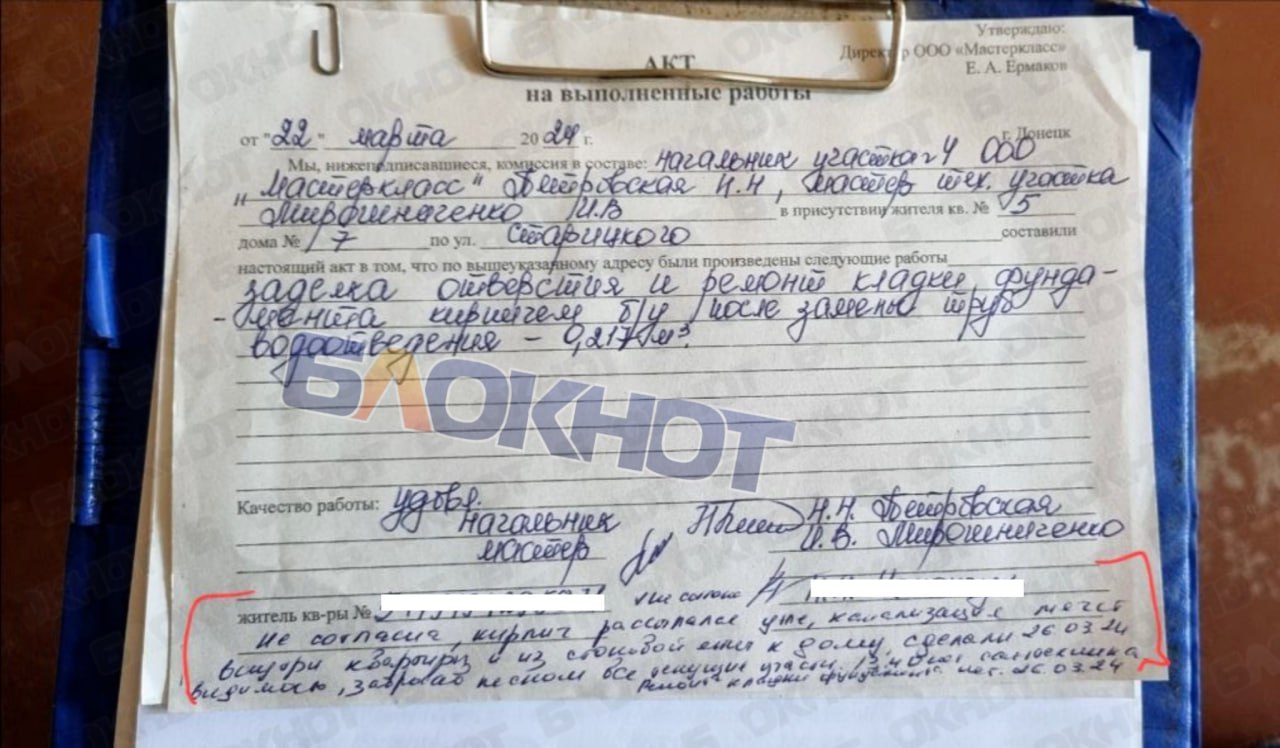 Утверждаю:
Директор ООО «Мастеркласс»
Е. А. Ермаков
АКТ
на выполненные работы
от "22" марта 2024 г. г. Донецк
Мы, нижеподписавшиеся, комиссия в составе: начальник участка 4 ООО
"Мастеркласс" Петровская Н.Н, мастер тех. участка
Мирошниченко И.В в присутствии жителя кв. № 5
дома № 7 по ул. Старицкого составили
настоящий акт в том, что по вышеуказанному адресу были произведены следующие работы
заделка отверстия и ремонт кладки фунда-
-мента кирпичем б/у после замены труб
водоотведения - 0,217 м³.
БЛОКНОТ
Качество работы: удовл.
начальник Н.Н. Петровская
мастер И.В. Мирошниченко
житель кв-ры № не согласна
Не согласна, кирпич рассыпался уже, канализация течет
внутри квартиры и из к дому, сделали 26.03.24
видимость, песком все текущие
Ремонт кладки фундамента 26.03.24